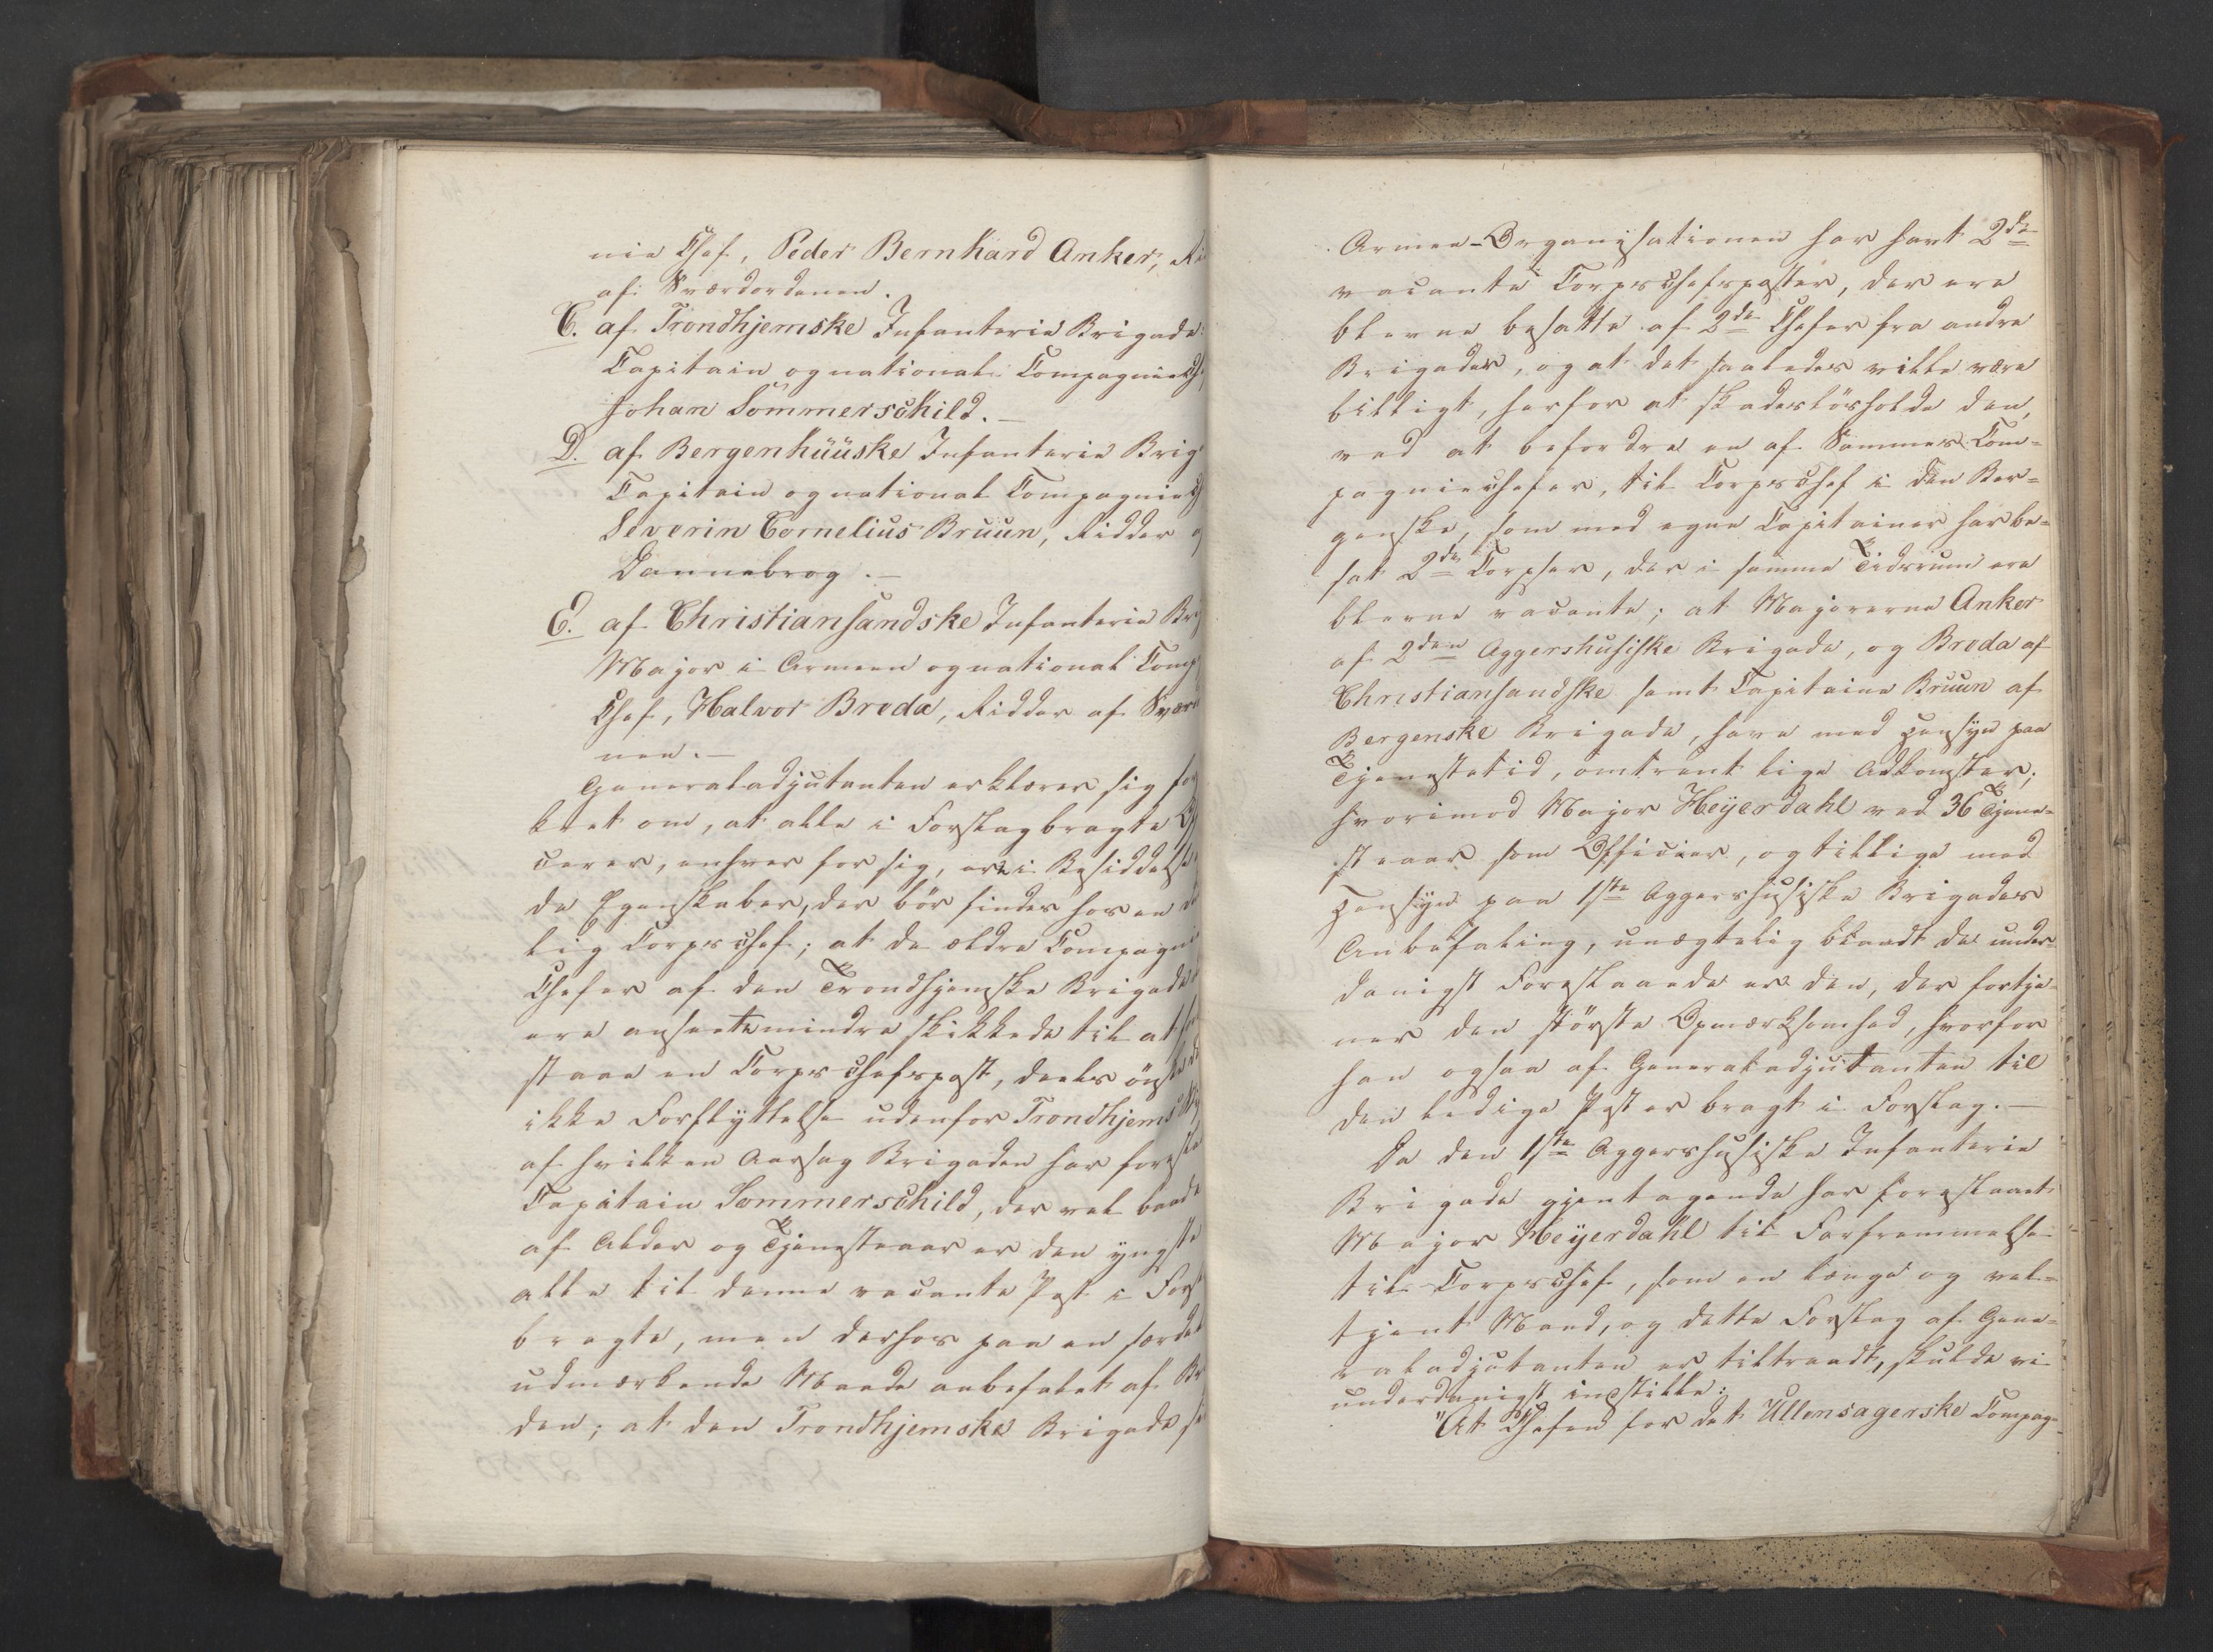 nie Chef, Peder Bernhard Anker, Ri
af Sværdordenen.
C. af Trondhjemske Infanterie Brigade:
Capitain og national Compagnie Ch
Johan Sommerschild. —
D. af Bergenhüüske Infanterie Brig
Capitain og national Compagnie Ch
Severin Cornelius Bruun, Ridder a
Dannebrog. —
E. af Christiansandske Infanterie Br
Major i Armeen og national Comp
Chef, Halvor Breda, Ridder af Sværd
nen. —
Generaladjutanten erklærer sig for
kret om, at alle i Forslag bragte O
cerer, enhver for sig, ere i Besiddelse
de Egenskaber, der bör findes hos en d
lig Corpschef; at de ældre Compagnie
Chefer af den Trondhjemske Brigade
ere ansaete mindre skikkede til at f
staae en Corpschefspost, deels önske d
ikke Forflyttelse udenfor Trondhjems
af hvilken Aarsag Brigaden har foresla
Capitain Sommerschild, der vel baade
af Alder og Tjenesteaar er den yngste
alle til denne vacante Post i Forsl
bragte, men derhos paa en særdel
udmærkende Maade anbefalet af Br
den; at den Trondhjemske Brigade s
Armee-Organisationen har havt 2de
vacante Corpschefsposter, der ere
blevne besatte af 2de Chefer fra andre
Brigader, og at det saaledes vilde være
billigt, herfor at skadeslösholde den,
ved at befordre en af Sammes Com=
pagniechefer, til Corpschef i den Ber=
genske, som med egne Capitainer har be=
sat 2de Corpser, der i samme Tidsrum ere
blevne vacante; at Majorerne Anker
af 2den Aggershusiske Brigade, og Breda af
Christiansandske samt Capitaine Bruun af
Bergenske Brigade, have med Hensyn paa
Tjenestetid, omtrent lige Adkomster,
hvorimod Major Heyerdahl ved 36 Tjene=
steaar som Officier, og tillige med
Hensyn paa 1ste Aggershusiske Brigades
Anbefaling, unægtelig blandt de under=
danigst Foreslaaede er den, der fortje=
ner den störste Opmærksomhed, hvorfor
han ogsaa af Generaladjutanten til
den ledige Post er bragt i Forslag. —
Da den 1ste Aggershusiske Infanterie
Brigade gjentagende har foreslaaet
Major Heyerdahl til Forfremmelse
til Corpschef, som en længe og vel=
tjent Mand, og dette Forslag af Gene=
raladjutanten er tiltraadt, skulde vi
underdanigst indstille:
"At Chefen for det Ullensagerske Compag=